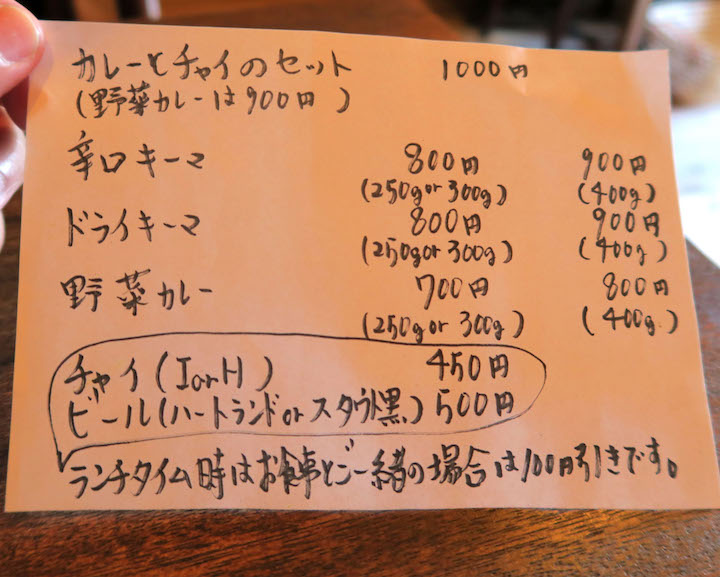 カレーとチャイのセット 1000円
(野菜カレーは900円)
辛口キーマ 800円 900円
(250gor300g) (400g)
ドライキーマ 800円 900円
(250gor300g) (400g)
野菜カレー 700円 800円
(250gor300g) (400g)
チャイ(IorH) 450円
ビール(ハートランドorスタウト黒) 500円
ランチタイム時はお食事とご一緒の場合は100円引きです。